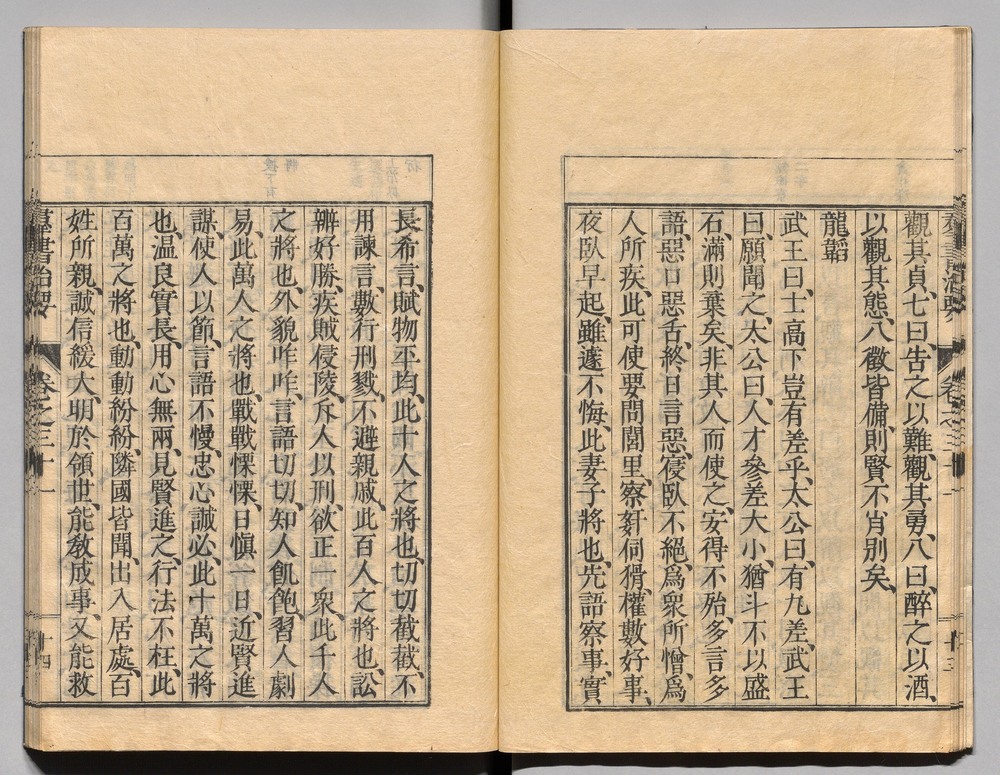 觀其貞、七曰、告之以難、觀其勇、八曰、醉之以酒、
以觀其態、八徵皆備、則賢不肖別矣、
龍韜
武王曰、士高下豈有差乎、太公曰、有九差、武王
曰、願聞之、太公曰、人才參差大小、猶斗不以盛
石、滿則棄矣、非其人而使之、安得不殆、多言多
語、惡口惡舌、終日言惡、寑臥不絕、爲衆所憎、爲
人所疾、此可使要問閭里、察奸伺猾、權數好事、
夜臥早起、雖遽不悔、此妻子將也、先語察事、實
長希言、賦物平均、此十人之將也、切切截截、不
用諫言、數行刑戮、不避親戚、此百人之將也、訟
辨好勝、疾賊侵陵、斥人以刑、欲正一衆、此千人
之將也、外貌咋咋、言語切切、知人飢飽、習人劇
易、此萬人之將也、戰戰慄慄、日愼一日、近賢進
謀、使人以節、言語不慢、忠心誠必、此十萬之將
也、温良實長、用心無兩、見賢進之、行法不枉、此
百萬之將也、動動紛紛、隣國皆聞、出入居處、百
姓所親、誠信緩大、明於領世、能敎成事、又能救
羣書治要 卷之三十一 十四